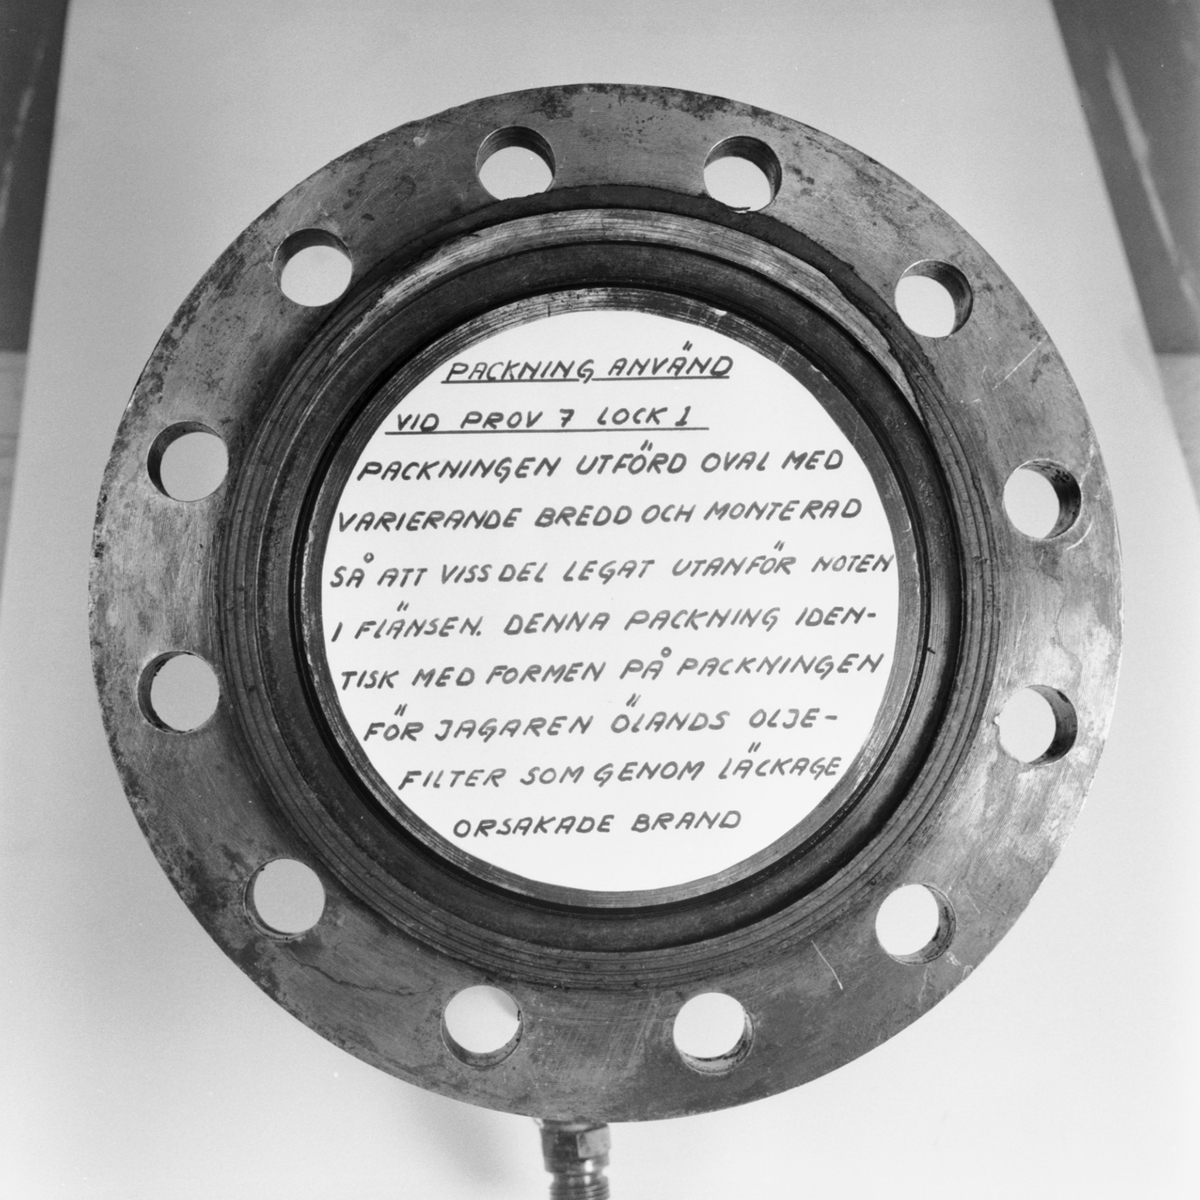 PACKNING ANVÄND
VID PROV 7 LOCK 1
PACKNINGEN UTFÖRD OVAL MED
VARIERANDE BREDD OCH MONTERAD
SÅ ATT VISS DEL LEGAT UTANFÖR NOTEN
I FLÄNSEN. DENNA PACKNING IDEN-
TISK MED FORMEN PÅ PACKNINGEN
FÖR JAGAREN ÖLANDS OLJE-
FILTER SOM GENOM LÄCKAGE
ORSAKADE BRAND